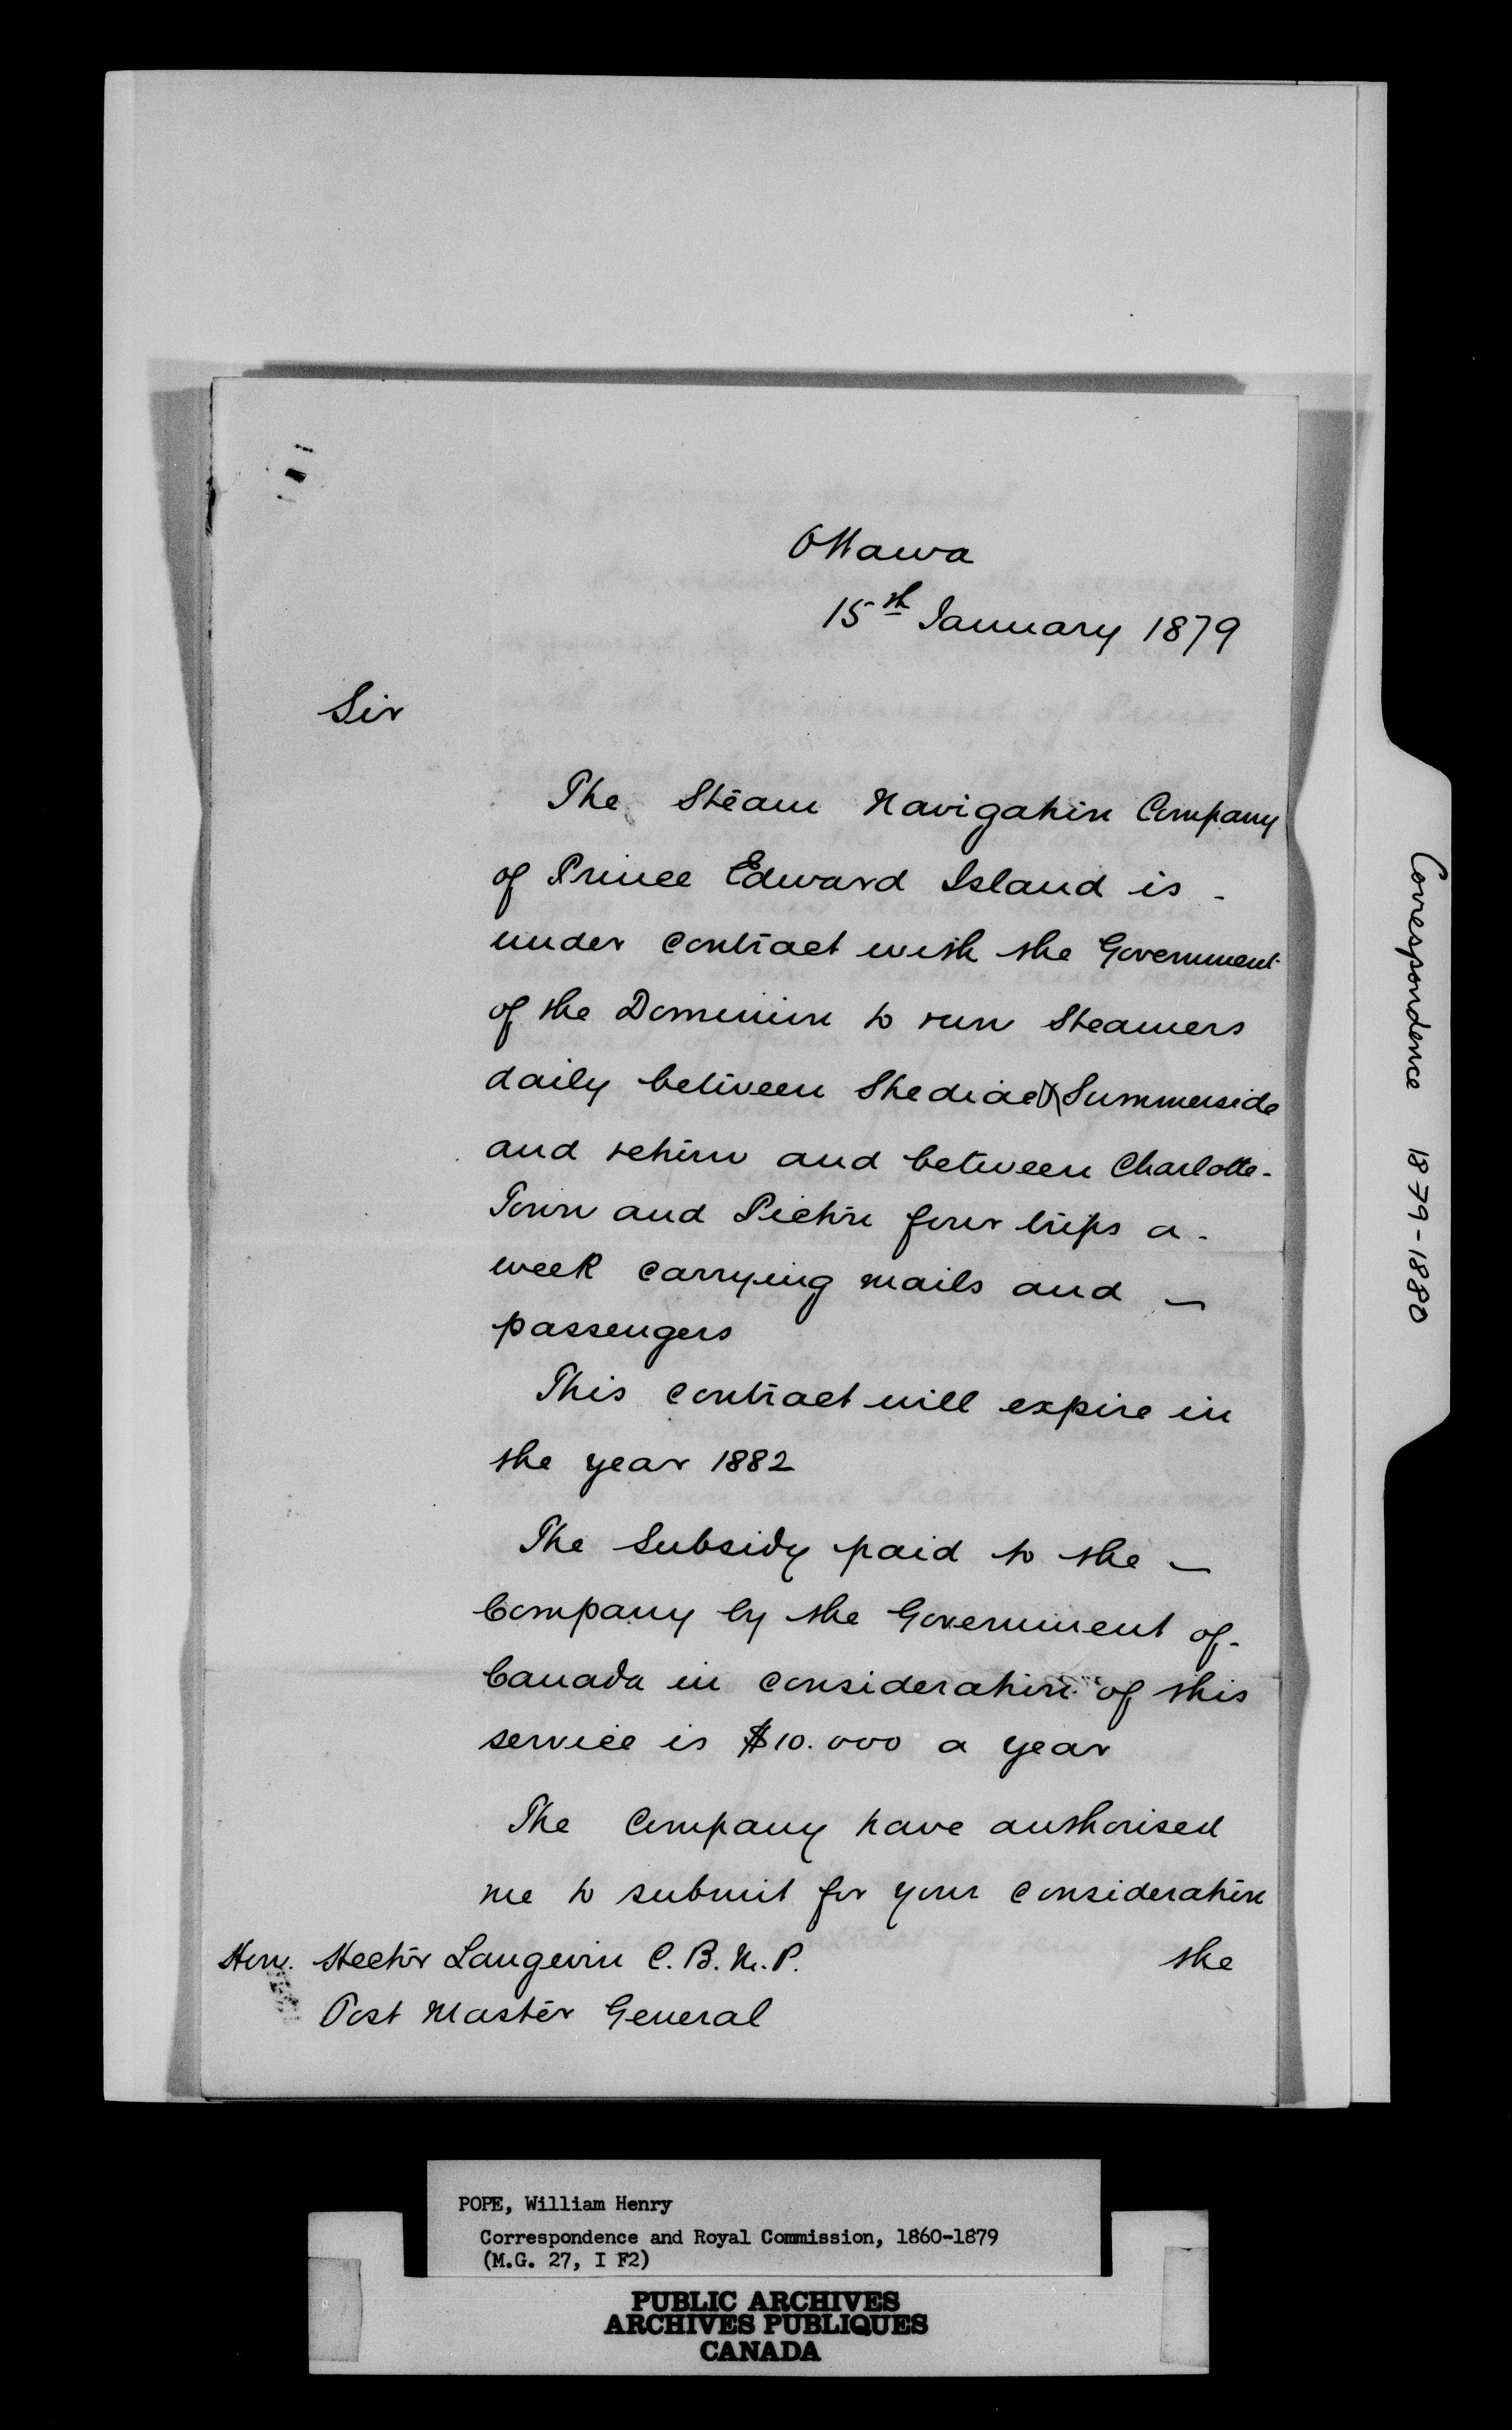 Ottawa
15th January 1879
Sir
The Steam Navigation Company
of Prince Edward Island is -
under contract with the Government
of the Dominion to run Steamers
daily between Shediac & Summerside
and return and between Charlotte-
Town and Pictou four trips a -
week carrying mails and -
passengers
This contract will expire in
the year 1882
The Subsidy paid to the -
Company by the Government of -
Canada in consideration of this
service is $10.000 a year
The Company have authorised
me to submit for your consideration
the
Hon. Hector Langevin C. B. M. P.
Post Master General
Correspondence 1879-1880
POPE, William Henry
Correspondence and Royal Commission, 1860-1879
(M.G. 27, I F2)
PUBLIC ARCHIVES
ARCHIVES PUBLIQUES
CANADA